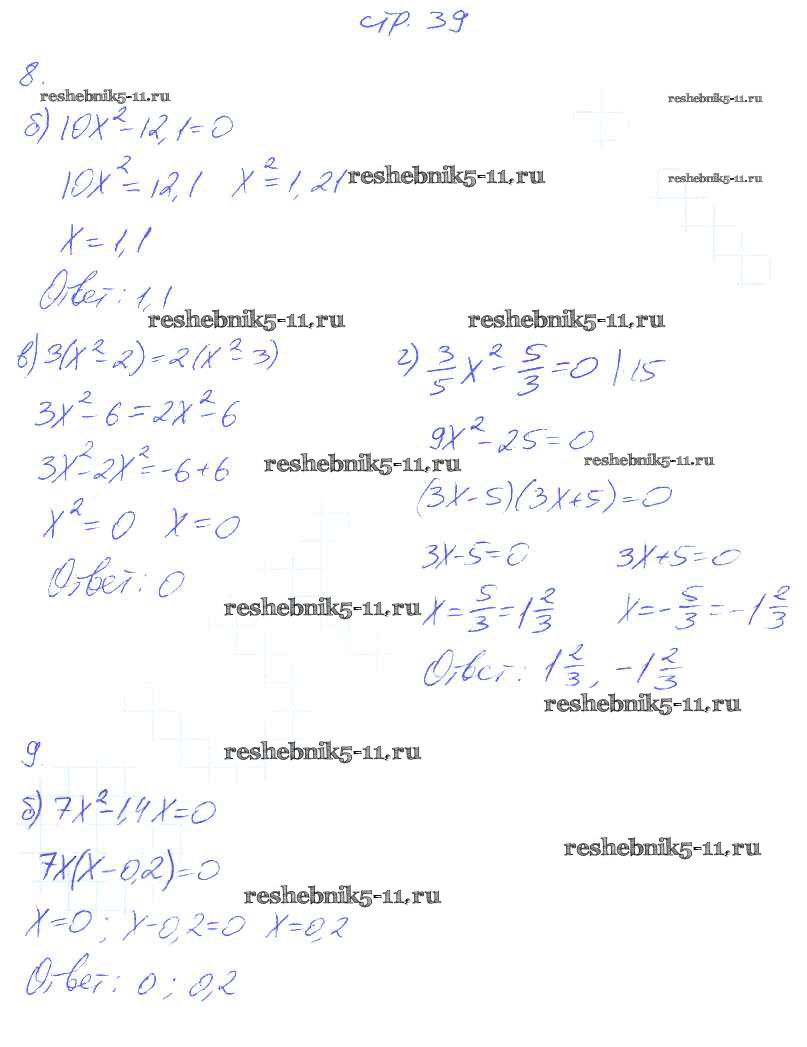 стр. 39
8.
reshebnik5-11.ru
reshebnik5-11.ru
б) 10x² - 12,1 = 0
10x² = 12,1 x² = 1,21
reshebnik5-11.ru
reshebnik5-11.ru
x = 1,1
Ответ: 1,1
reshebnik5-11.ru
reshebnik5-11.ru
в) 3(x² - 2) = 2(x² - 3)
3x² - 6 = 2x² - 6
3x² - 2x² = -6 + 6
reshebnik5-11.ru
x² = 0 x = 0
Ответ: 0
г) 3/5 x² - 5/3 = 0 | · 15
9x² - 25 = 0
reshebnik5-11.ru
(3x - 5)(3x + 5) = 0
3x - 5 = 0 3x + 5 = 0
reshebnik5-11.ru
x = 5/3 = 1 2/3 x = - 5/3 = -1 2/3
Ответ: 1 2/3, -1 2/3
reshebnik5-11.ru
9.
reshebnik5-11.ru
б) 7x² - 1,4x = 0
7x(x - 0,2) = 0
reshebnik5-11.ru
reshebnik5-11.ru
x = 0; x - 0,2 = 0 x = 0,2
Ответ: 0; 0,2